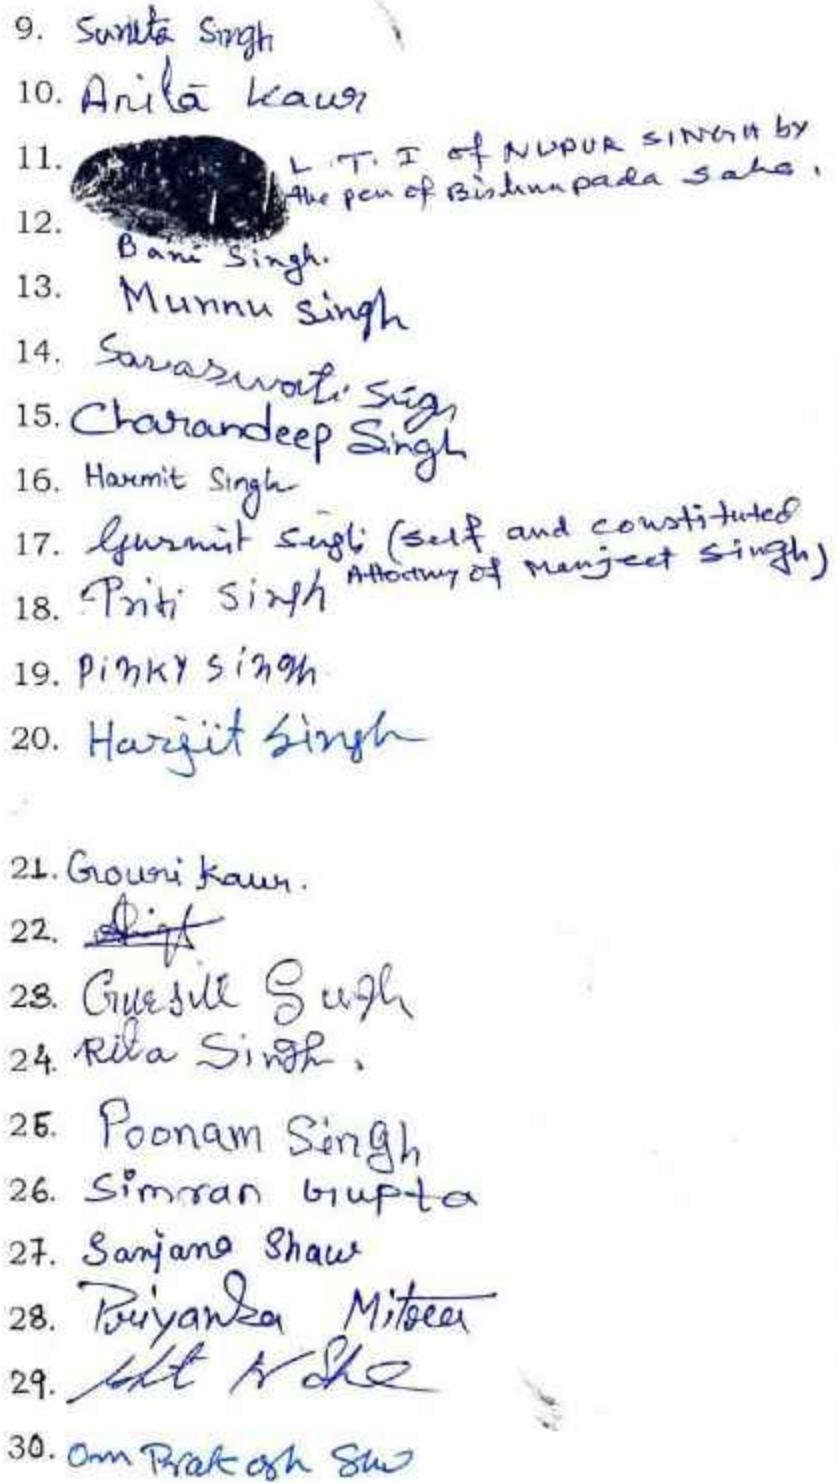 9. Sunita Singh
10. Anita Kaur
11. L.T.I of NUPUR SINGH by
the pen of Bishnupada Saha.
12. Bani Singh.
13. Munnu Singh
14. Saraswati Singh
15. Charandeep Singh
16. Harmit Singh
17. Gurmit Singh (self and constituted
Attorney of Manjeet Singh)
18. Priti Singh
19. Pinky Singh
20. Harjit Singh
21. Gouri Kaur.
22.
23. Singh
24. Rita Singh.
25. Poonam Singh
26. Simran Gupta
27. Sanjana Shaw
28. Priyanka Mitra
29.
30. Om Prakash Shw